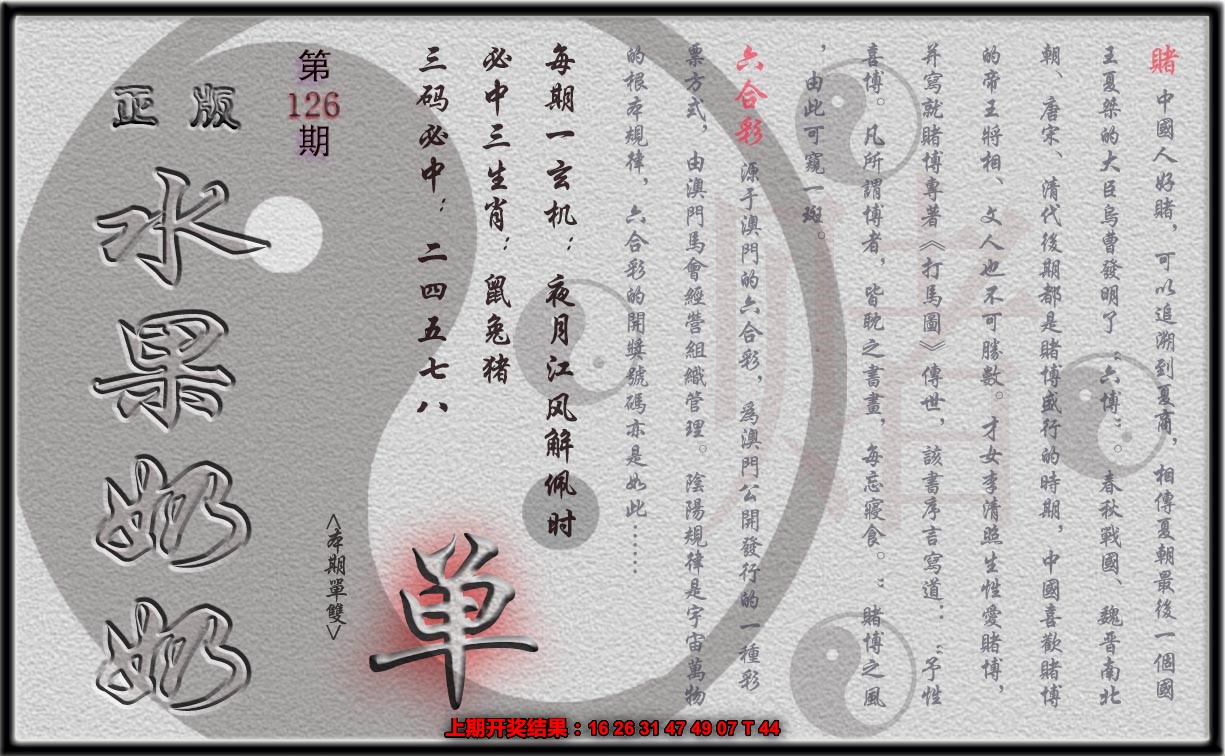 賭 中國人好賭，可以追溯到夏商，相傳夏朝最後一個國
王夏桀的大臣烏曹發明了“六博”。春秋戰國、魏晋南北
朝、唐宋、清代後期都是賭博盛行的時期，中國喜歡賭博
的帝王將相、文人也不可勝數。才女李清照生性愛賭博，
并寫就賭博專著《打馬圖》傳世，該書序言寫道：“予性
喜博。凡所謂博者，皆耽之書畫，每忘寢食。”賭博之風
，由此可窺一斑。
六合彩 源于澳門的六合彩，爲澳門公開發行的一種彩
票方式，由澳門馬會經營組織管理。陰陽規律是宇宙萬物
的根本規律，六合彩的開獎號碼亦是如此……
每期一玄机：夜月江风解佩时
必中三生肖：鼠兔猪
三码必中：二四五七八
单
<本期單雙>
第
126
期
正版
水果奶奶
上期开奖结果：16 26 31 47 49 07 T 44
赌